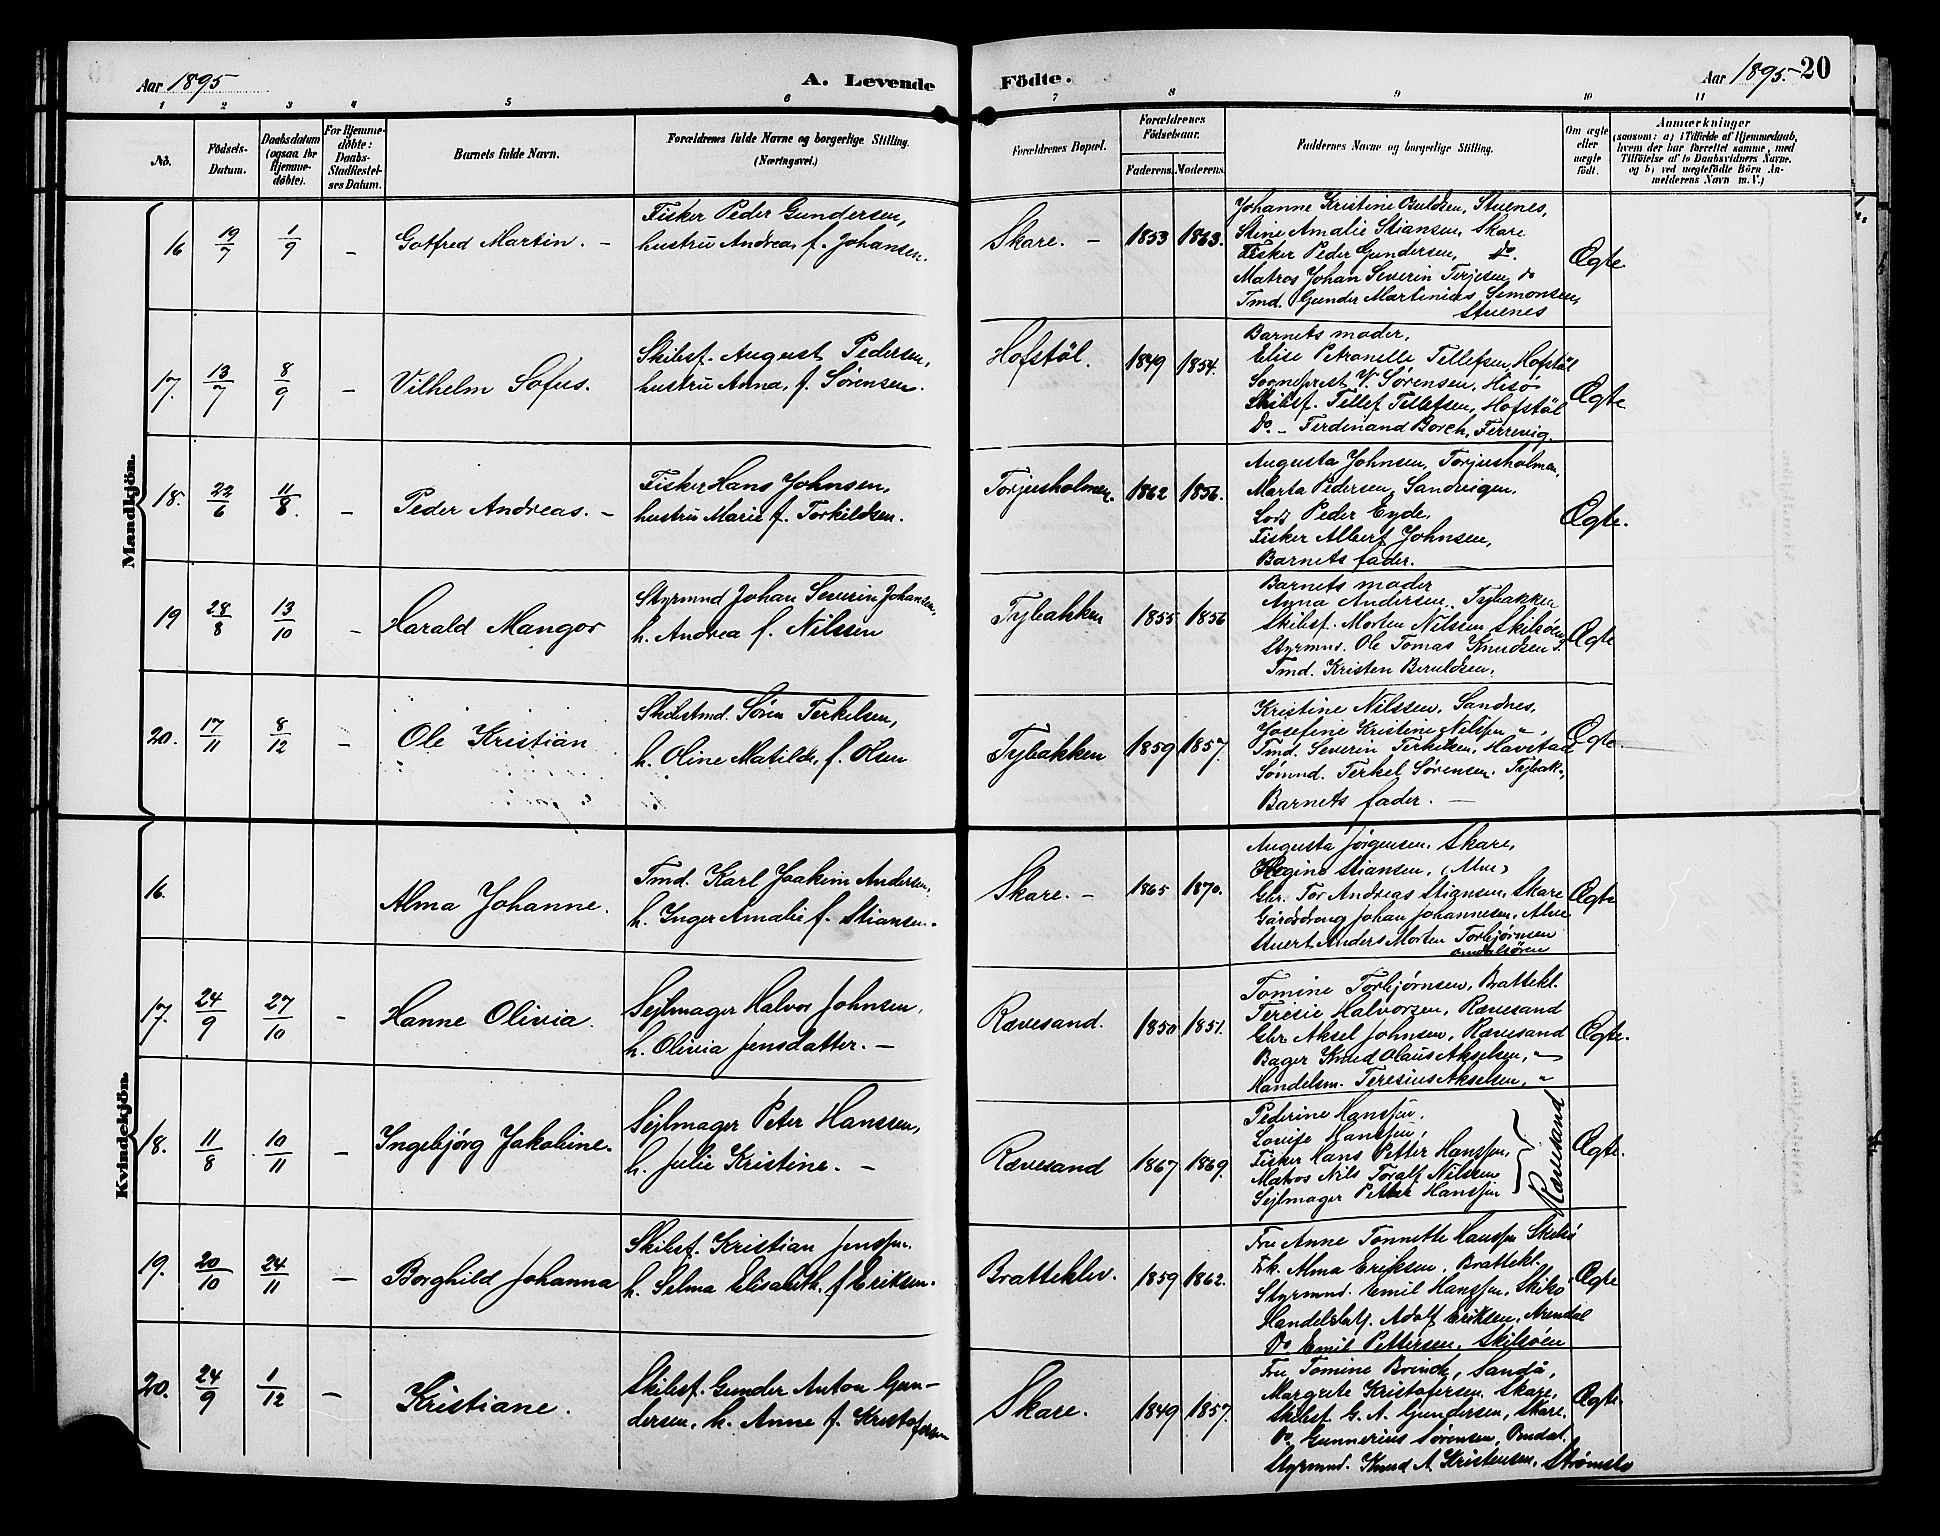 Aar 1895
A. Levende
Födte.
Aar 1895.
20
1 2 3 4 5 6 7 8 9 10 11
No.
Födsels-
Datum.
Daabsdatum
(ogsaa for
Hjemme-
döbte).
For Hjemme-
döbte:
Daabs-
Stadfæstel-
ses Datum.
Barnets fulde Navn.
Forældrenes fulde Navne og borgerlige Stilling.
(Næringsvei.)
Forældrenes Bopæl.
Forældrenes
Födselsaar.
Faderens. Moderens.
Faddernes Navne og borgerlige Stilling.
Om ægte
eller
uægte
födt.
Anmærkninger
(saasom: a) i Tilfælde af Hjemmedaab,
hvem der har forrettet samme, med
Tilföielse af to Daabsvidners Navne.
og b) ved uægtefödte Börn An-
melderens Navn m. V.)
Mandkjön.
16 19/7 1/9 – Gotfred Martin. –
Fisker Peder Gundersen,
hustru Andrea, f. Johansen.
Skare. – 1853 1863.
Johanne Kristine Stuenes,
Stine Amalie Stiansen, Skare
Fisker Peder Gundersen, do.
Matros Johan Severin Terjesen, do
Tmd. Gunder Martinius Simonsen,
Stuenes
Ægte.
17. 13/7 8/9 – Vilhelm Sofus.
Skibsf. August Pedersen,
hustru Anna, f. Sørensen.
Hofstøl. 1849 1854.
Barnets moder,
Elise Petronelle Tellefsen, Hofstøl
Sogneprest V. Sørensen, Hisø
Skibsf. Tellef Tellefsen, Hofstøl
Do. – Ferdinand Borch, Ferrevig.
Ægte
18. 22/6 11/8. – Peder Andreas. –
Fisker Hans Johnsen,
hustru Marie f. Torkildsen.
Torjusholmen. 1862 1856.
Augusta Johnsen, Torjusholmen,
Marta Pedersen, Sandvigen,
Lods Peder Eyde,
Fisker Albert Johnsen,
Barnets fader.
Ægte.
19 28/8 13/10 – Harald Mangor
Styrmnd Johan Severin Johansen,
h. Andrea f. Nilssen
Tybakken 1855 1856
Barnets moder
Anna Andersen, Tybakken
Skibsf. Morten Nilssen Skilsøen
Styrmnd. Ole Tomas Knudsen
Tmd. Kristen Beruldsen.
Ægte
20. 17/11 8/12 – Ole Kristian
Skibstmd. Søren Terkelsen,
h. Oline Matilde, f. Olsen
Tybakken 1859 1857.
Kristine Nilssen, Sandnes,
Josefine Kristine Nilssen "
Tmd. Severin Terkelsen, Havstad
Sømnd. Terkel Sørensen, Tybak.
Barnets fader. –
Ægte.
Kvindekjön.
16. Alma Johanne.
Tmd. Karl Joakim Andersen,
h. Inger Amalie f. Stiansen.
Skare. – 1865 1870.
Augusta Jørgensen, Skare,
Regine Stiansen, (Alve)
Gbr. Tor Andreas Stiansen, Skare
Gårdsdreng Johan Johannesen, Alve
Stuert Anders Morten Torbjørnsen

Ægte
17. 24/9 27/10 – Hanne Olivia.
Sejlmager Halvor Johnsen,
h. Olivia Jensdatter. –
Rævesand. 1850 1851.
Tomine Torbjørnsen, Brattekl.
Teresie Halvorsen, Rævesand
Gbr Aksel Johnsen, Rævesand
Bager Knud Olaus Akselsen, "
Handelsm. Teresius Akselsen, "
Ægte.
18. 11/8 10/11 – Ingebjørg Jakobine.
Sejlmager Peter Hanssen,
h. Julie Kristine. –
Rævesand 1867 1869.
Pederine Hanssen,
Lovise Hanssen,
Fisker Hans Petter Hanssen,
Matros Nils Toralf Nilssen
Sejlmager Petter Hanssen
Rævesand
Ægte.
19. 20/10 24/11 – Borghild Johanna
Skibsf. Kristian Jenssen.
h. Selma Elisabeth. f Eriksen.
Bratteklev. 1859 1862.
Fru Anne Tonnette Hanssen Skilsø
Frk. Alma Eriksen, Brattekl.
Styrmnd. Emil Hanssen, Skilsø
Handelsbetj. Adolf Eriksen, Arendal
Do. Emil Pettersen, Skilsøen
Ægte
20. 24/9 1/12 – Kristiane.
Skibsf. Gunder Anton Gun-
dersen, h. Anne f. Kristofersen
Skare. 1849 1857.
Fru Tomine Sandø,
Margrete Kristofersen, Skare,
Skibsf G. A. Gundersen, Skare.
Do. Gunnerius Sørensen,
Styrmnd. Knud A. Kristensen, Strømsbo
Ægte.